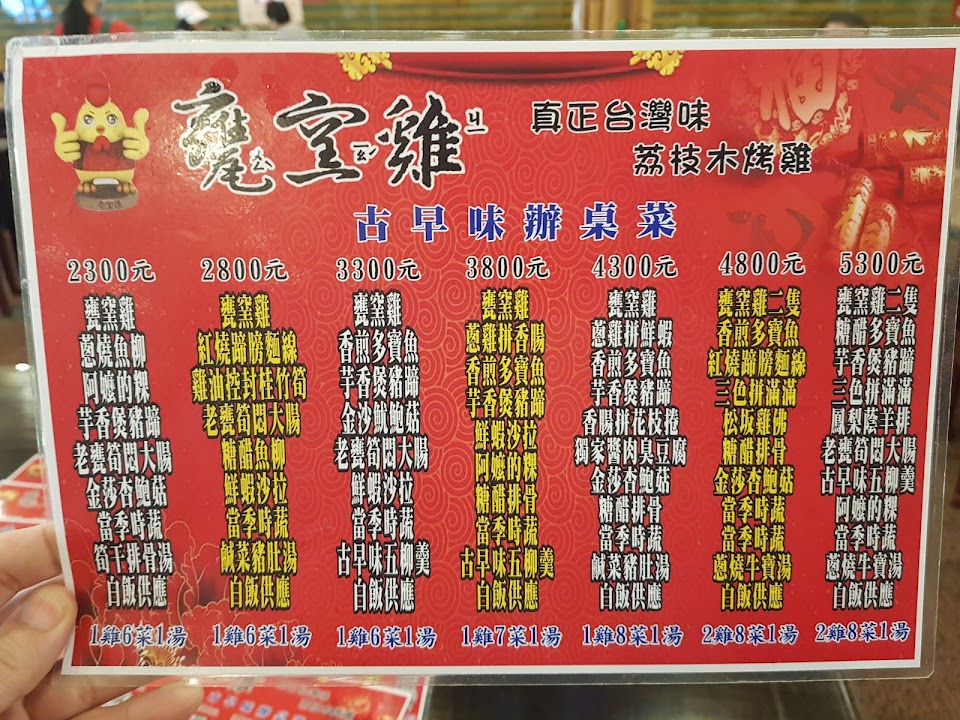 甕窑雞
ㄐㄧ
真正台灣味
荔枝木烤雞
古早味辦桌菜
2300元
甕窯雞
蔥燒魚柳
阿嬤的粿
芋香煲豬蹄
老甕筍悶大腸
金莎杏鮑菇
當季時蔬
筍干排骨湯
白飯供應
1雞6菜1湯
2800元
甕窯雞
紅燒蹄膀麵線
雞油控封桂竹筍
老甕筍悶大腸
糖醋魚柳
鮮蝦沙拉
當季時蔬
鹹菜豬肚湯
白飯供應
1雞6菜1湯
3300元
甕窯雞
香煎多寶魚
芋香煲豬蹄
金沙魷鮑菇
老甕筍悶大腸
鮮蝦沙拉
當季時蔬
古早味五柳羹
白飯供應
1雞6菜1湯
3800元
甕窯雞
蔥雞拼香腸
香煎多寶魚
芋香煲豬蹄
鮮蝦沙拉
阿嬤的粿
糖醋排骨
當季時蔬
古早味五柳羹
白飯供應
1雞7菜1湯
4300元
甕窯雞
蔥雞拼鮮蝦
香煎多寶魚
芋香煲豬蹄
香腸拼花枝捲
獨家醬肉臭豆腐
金莎杏鮑菇
糖醋排骨
當季時蔬
鹹菜豬肚湯
白飯供應
1雞8菜1湯
4800元
甕窯雞二隻
香煎多寶魚
紅燒蹄膀麵線
三色拼滿滿
松坂雞佛
糖醋排骨
金莎杏鮑菇
當季時蔬
當季時蔬
蔥燒牛寶湯
白飯供應
2雞8菜1湯
5300元
甕窯雞二隻
糖醋多寶魚
芋香煲豬蹄
三色拼滿滿
鳳梨蔭羊排
老甕筍悶大腸
古早味五柳羹
阿嬤的粿
當季時蔬
蔥燒牛寶湯
白飯供應
2雞8菜1湯